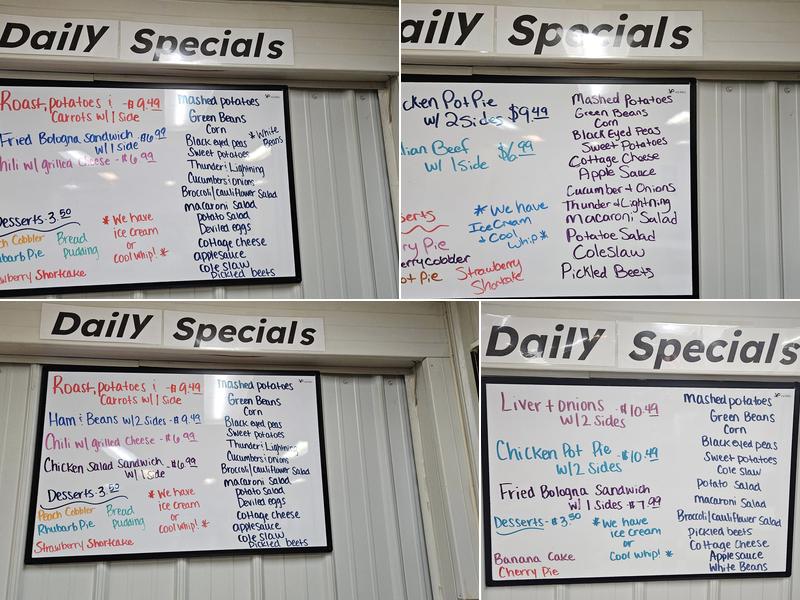 Daily Specials
Roast, potatoes & - $9.49
Carrots w/ 1 side
Fried Bologna Sandwich - $6.99
w/ 1 side
Chili w/ grilled cheese - $6.99
Desserts - 3.50
Peach Cobbler
Rhubarb Pie
Bread
pudding
Strawberry Shortcake
* We have
ice cream
or
cool whip! *
mashed potatoes
Green Beans
Corn
Black eyed peas
* White
Beans
Sweet potatoes
Thunder & Lightning
Cucumbers & onions
Broccoli/cauliflower Salad
macaroni salad
potato salad
Deviled eggs
cottage cheese
applesauce
cole slaw
pickled beets
Daily Specials
cken Pot Pie
w/ 2 Sides $9.49
lian Beef
w/ 1 Side $6.99
erts
ry Pie
erry cobbler
ot Pie
Strawberry
Shortcake
* We have
Ice Cream
& Cool
Whip *
Mashed Potatoes
Green Beans
Corn
Black Eyed Peas
Sweet Potatoes
Cottage Cheese
Apple Sauce
Cucumber & Onions
Thunder & Lightning
Macaroni Salad
Potatoe Salad
Coleslaw
Pickled Beets
Daily Specials
Roast, potatoes & - $9.49
Carrots w/ 1 side
Ham & Beans w/ 2 Sides - $9.49
Chili w/ grilled Cheese - $6.99
Chicken Salad Sandwich - $6.99
w/ 1 side
Desserts - 3.50
Peach Cobbler
Rhubarb Pie
Bread
pudding
Strawberry Shortcake
* We have
ice cream
or
cool whip! *
mashed potatoes
Green Beans
Corn
Black eyed peas
Sweet potatoes
Thunder & Lightning
Cucumbers & onions
Broccoli/cauliflower Salad
macaroni salad
potato salad
Deviled eggs
cottage cheese
applesauce
cole slaw
pickled beets
Daily Specials
Liver + onions - $10.49
w/ 2 sides
Chicken Pot Pie - $10.49
w/ 2 sides
Fried Bologna Sandwich
w/ 1 sides - $7.99
Desserts - $3.50
Banana Cake
Cherry Pie
* We have
ice cream
or
Cool whip! *
Mashed potatoes
Green Beans
Corn
Black eyed peas
Sweet potatoes
Cole slaw
Potato salad
macaroni salad
Broccoli/cauliflower Salad
pickled beets
Cottage Cheese
Apple sauce
White Beans